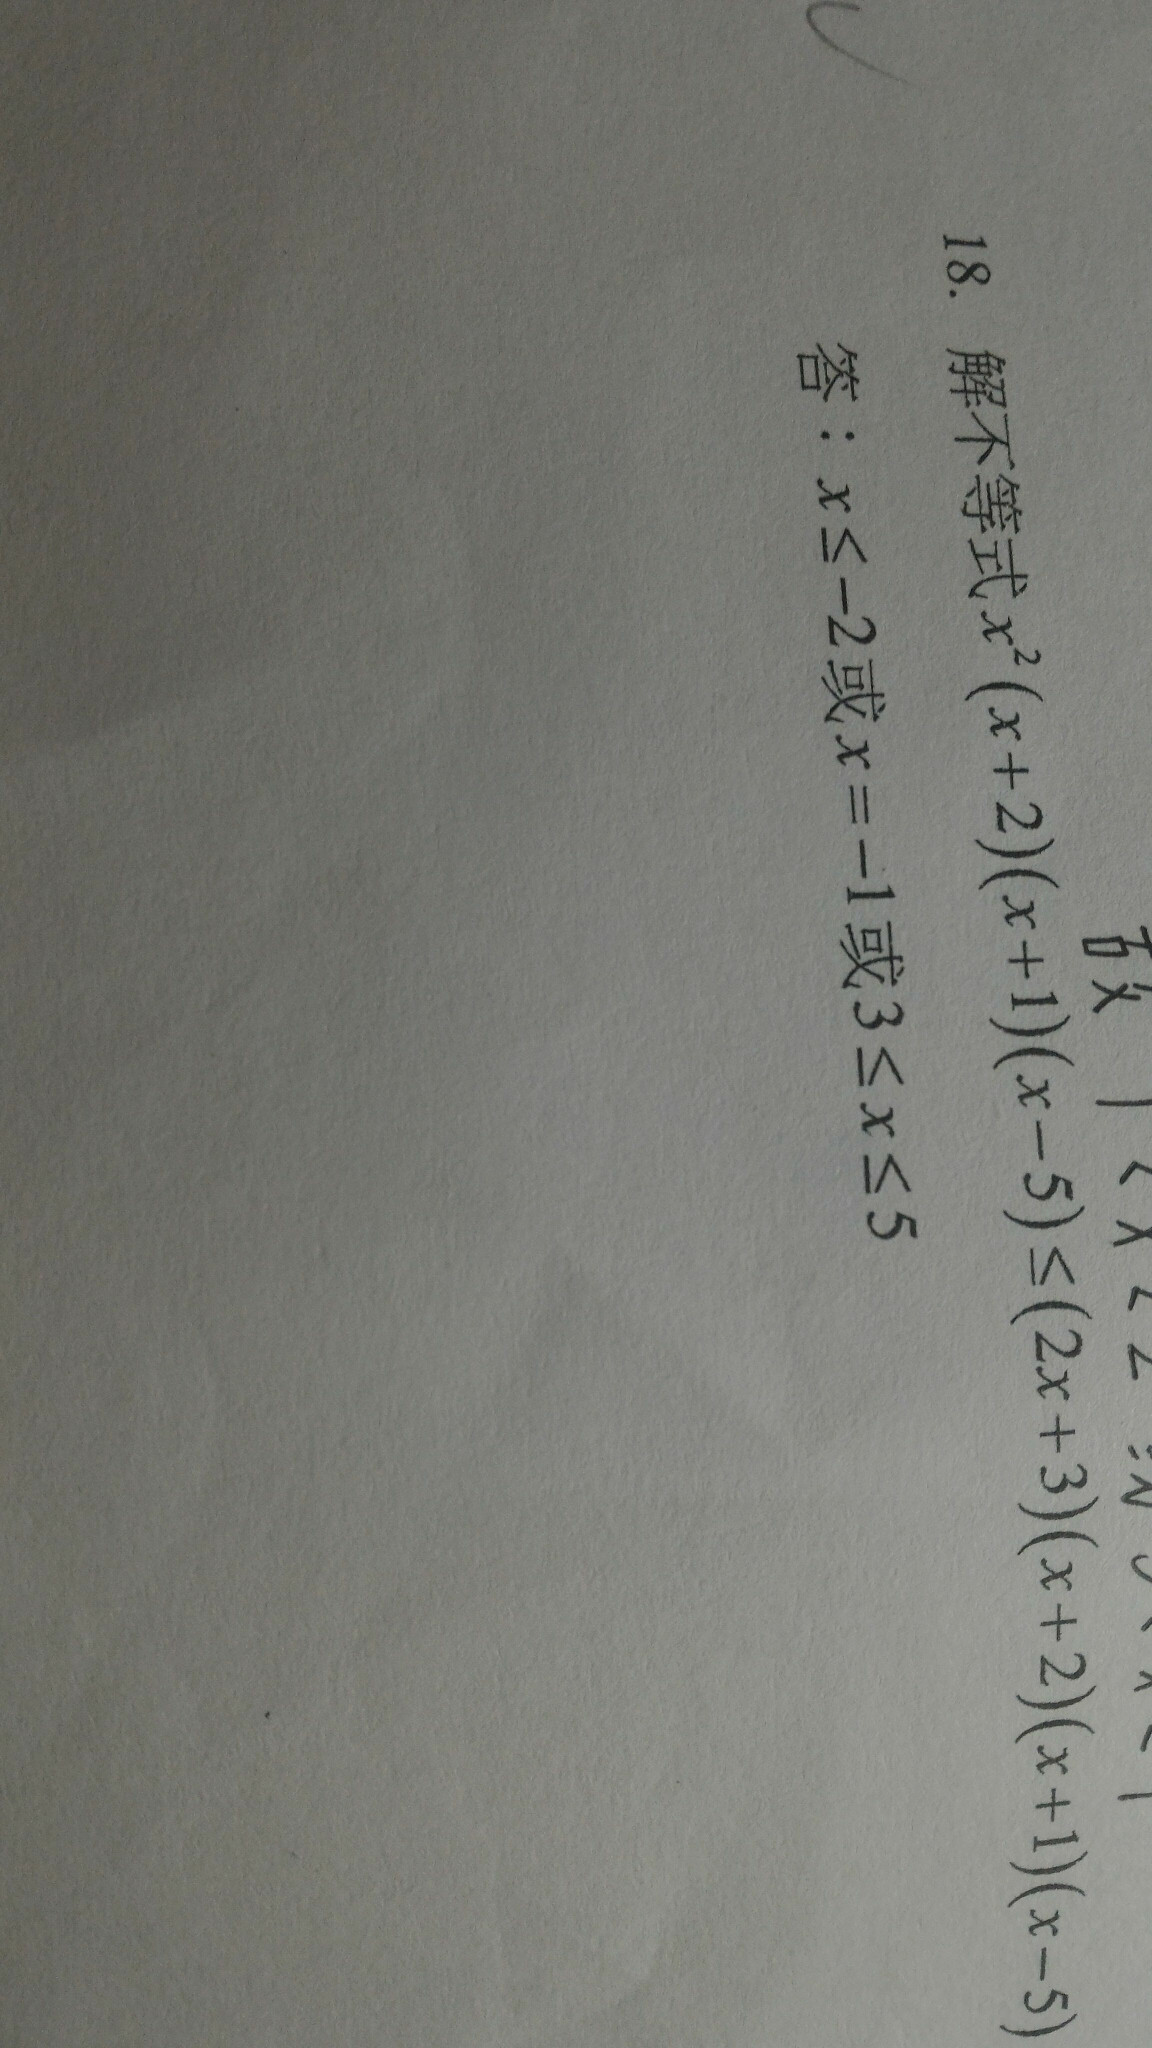 18. 解不等式x²(x+2)(x+1)(x-5)≤(2x+3)(x+2)(x+1)(x-5)
答：x≤-2或x=-1或3≤x≤5